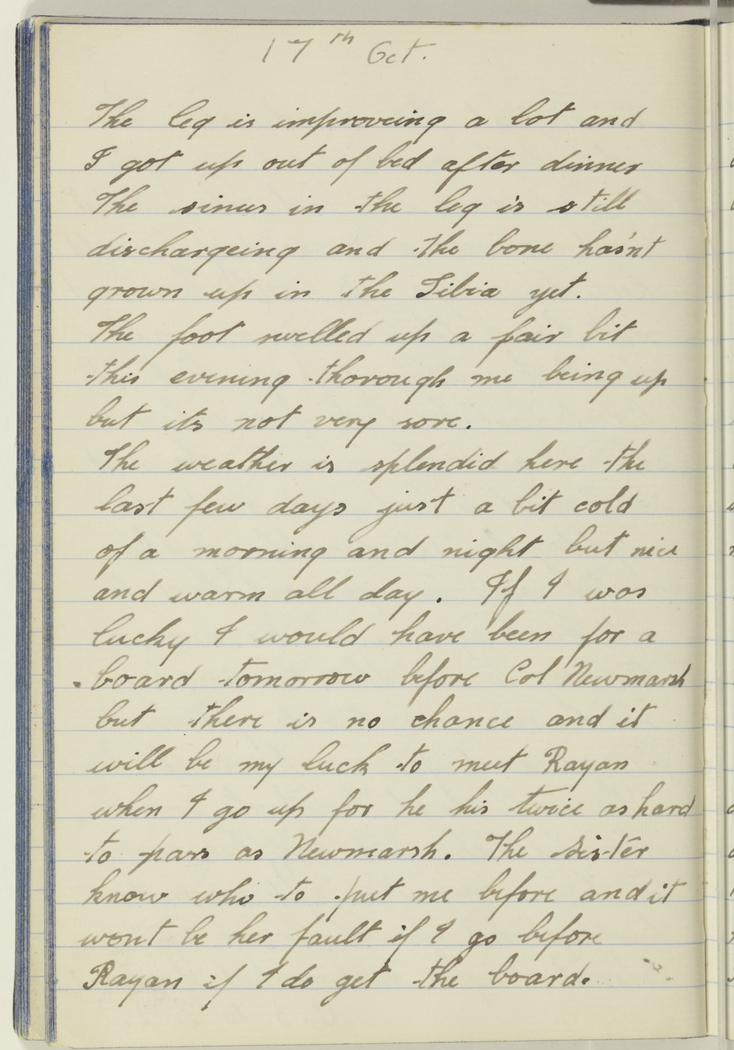 17th Oct.
The leg is improveing a lot and
I got up out of bed after dinner
The sinus in the leg is still
dischargeing and the bone has'nt
grown up in the Tibia yet.
The foot swelled up a fair bit
this evening thorough me being up
but its not very sore.
The weather is splendid here the
last few days just a bit cold
of a morning and night but nice
and warm all day. If I was
lucky I would have been for a
board tomorrow before Col Newmarsh
but there is no chance and it
will be my luck to meet Rayan
when I go up for he his twice as hard
to pass as Newmarsh. The Sister
know who to put me before and it
wont be her fault if I go before
Rayan if I do get the board.